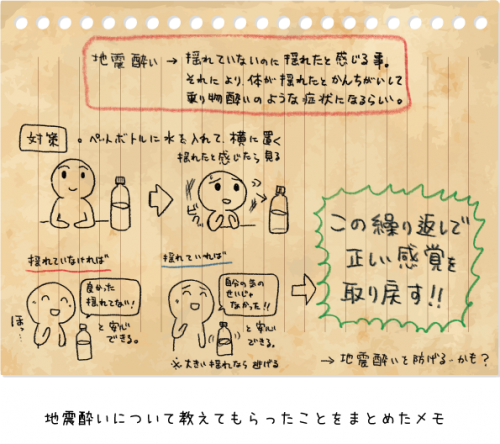 地震酔い → 揺れていないのに揺れたと感じる事。
それにより、体が揺れたとかんちがいして
乗り物酔いのような症状になるらしい。
対策 。ペットボトルに水を入れて、横に置く
揺れたと感じたら見る
ビクッ
揺れていなければ
良かった
揺れてない!
ほっ…
と安心
できる。
揺れていれば
自分の気の
せいじゃ
なかった!!
と安心
できる。
※大きい揺れなら逃げる
この繰り返しで
正しい感覚を
取り戻す!!
→ 地震酔いを防げる-かも?
地震酔いについて教えてもらったことをまとめたメモ